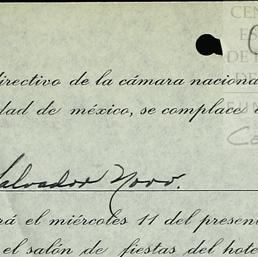 CEN
ES
DE
directivo de la cámara naciona
dad de méxico, se complace
Ca
Salvador Novo.
rá el miércoles 11 del presen
el salón de fiestas del hote